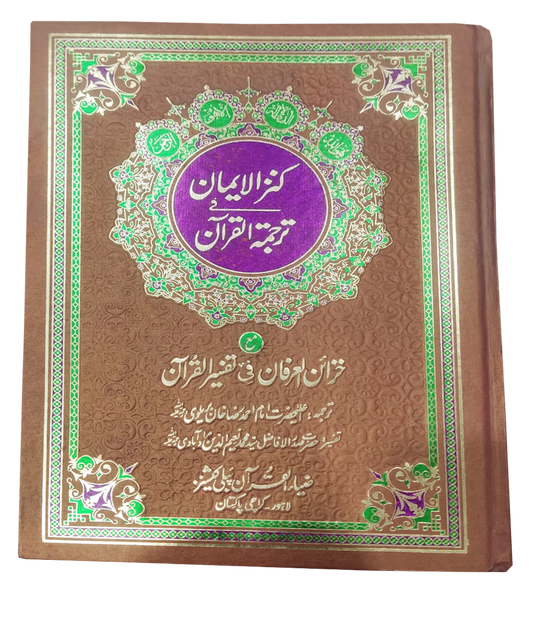 کنز الایمان
فی
ترجمۃ القرآن
مع
خزائن العرفان فی تفسیر القرآن
ترجمہ: اعلیٰحضرت امام احمد رضا خان بریلوی رحمۃ اللہ علیہ
تفسیر: صدر الافاضل سید محمد نعیم الدین مراد آبادی رحمۃ اللہ علیہ
ضیاء القرآن پبلی کیشنز
لاہور - کراچی پاکستان